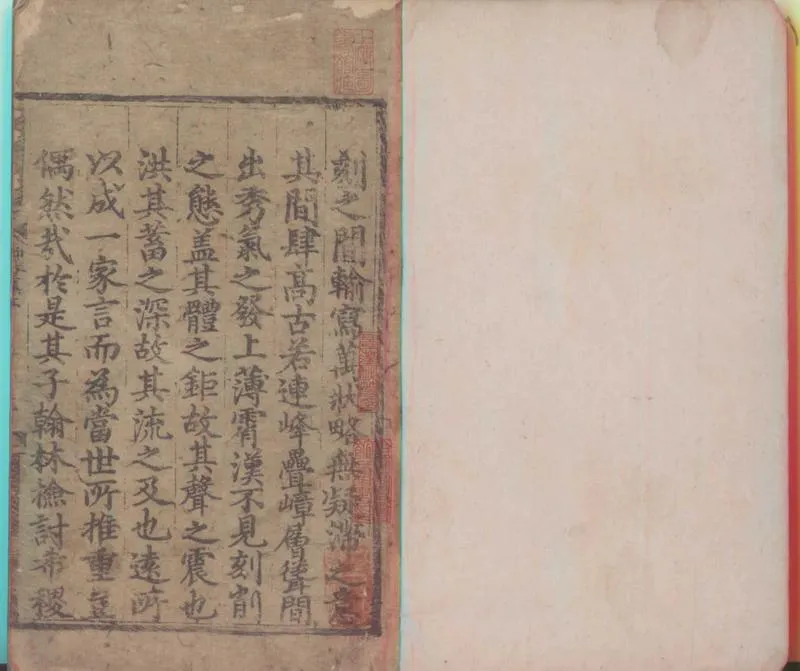 刻之間輸寫萬狀略無凝滯之意
其間肆髙古若連峰疊嶂層聳間
出秀氣之發上薄霄漢不見刻削
之態盖其體之鉅故其聲之震也
洪其蓄之深故其流之及也遠所
以成一家言而為當世所推重豈
偶然㢤於是其子翰林檢討希稷